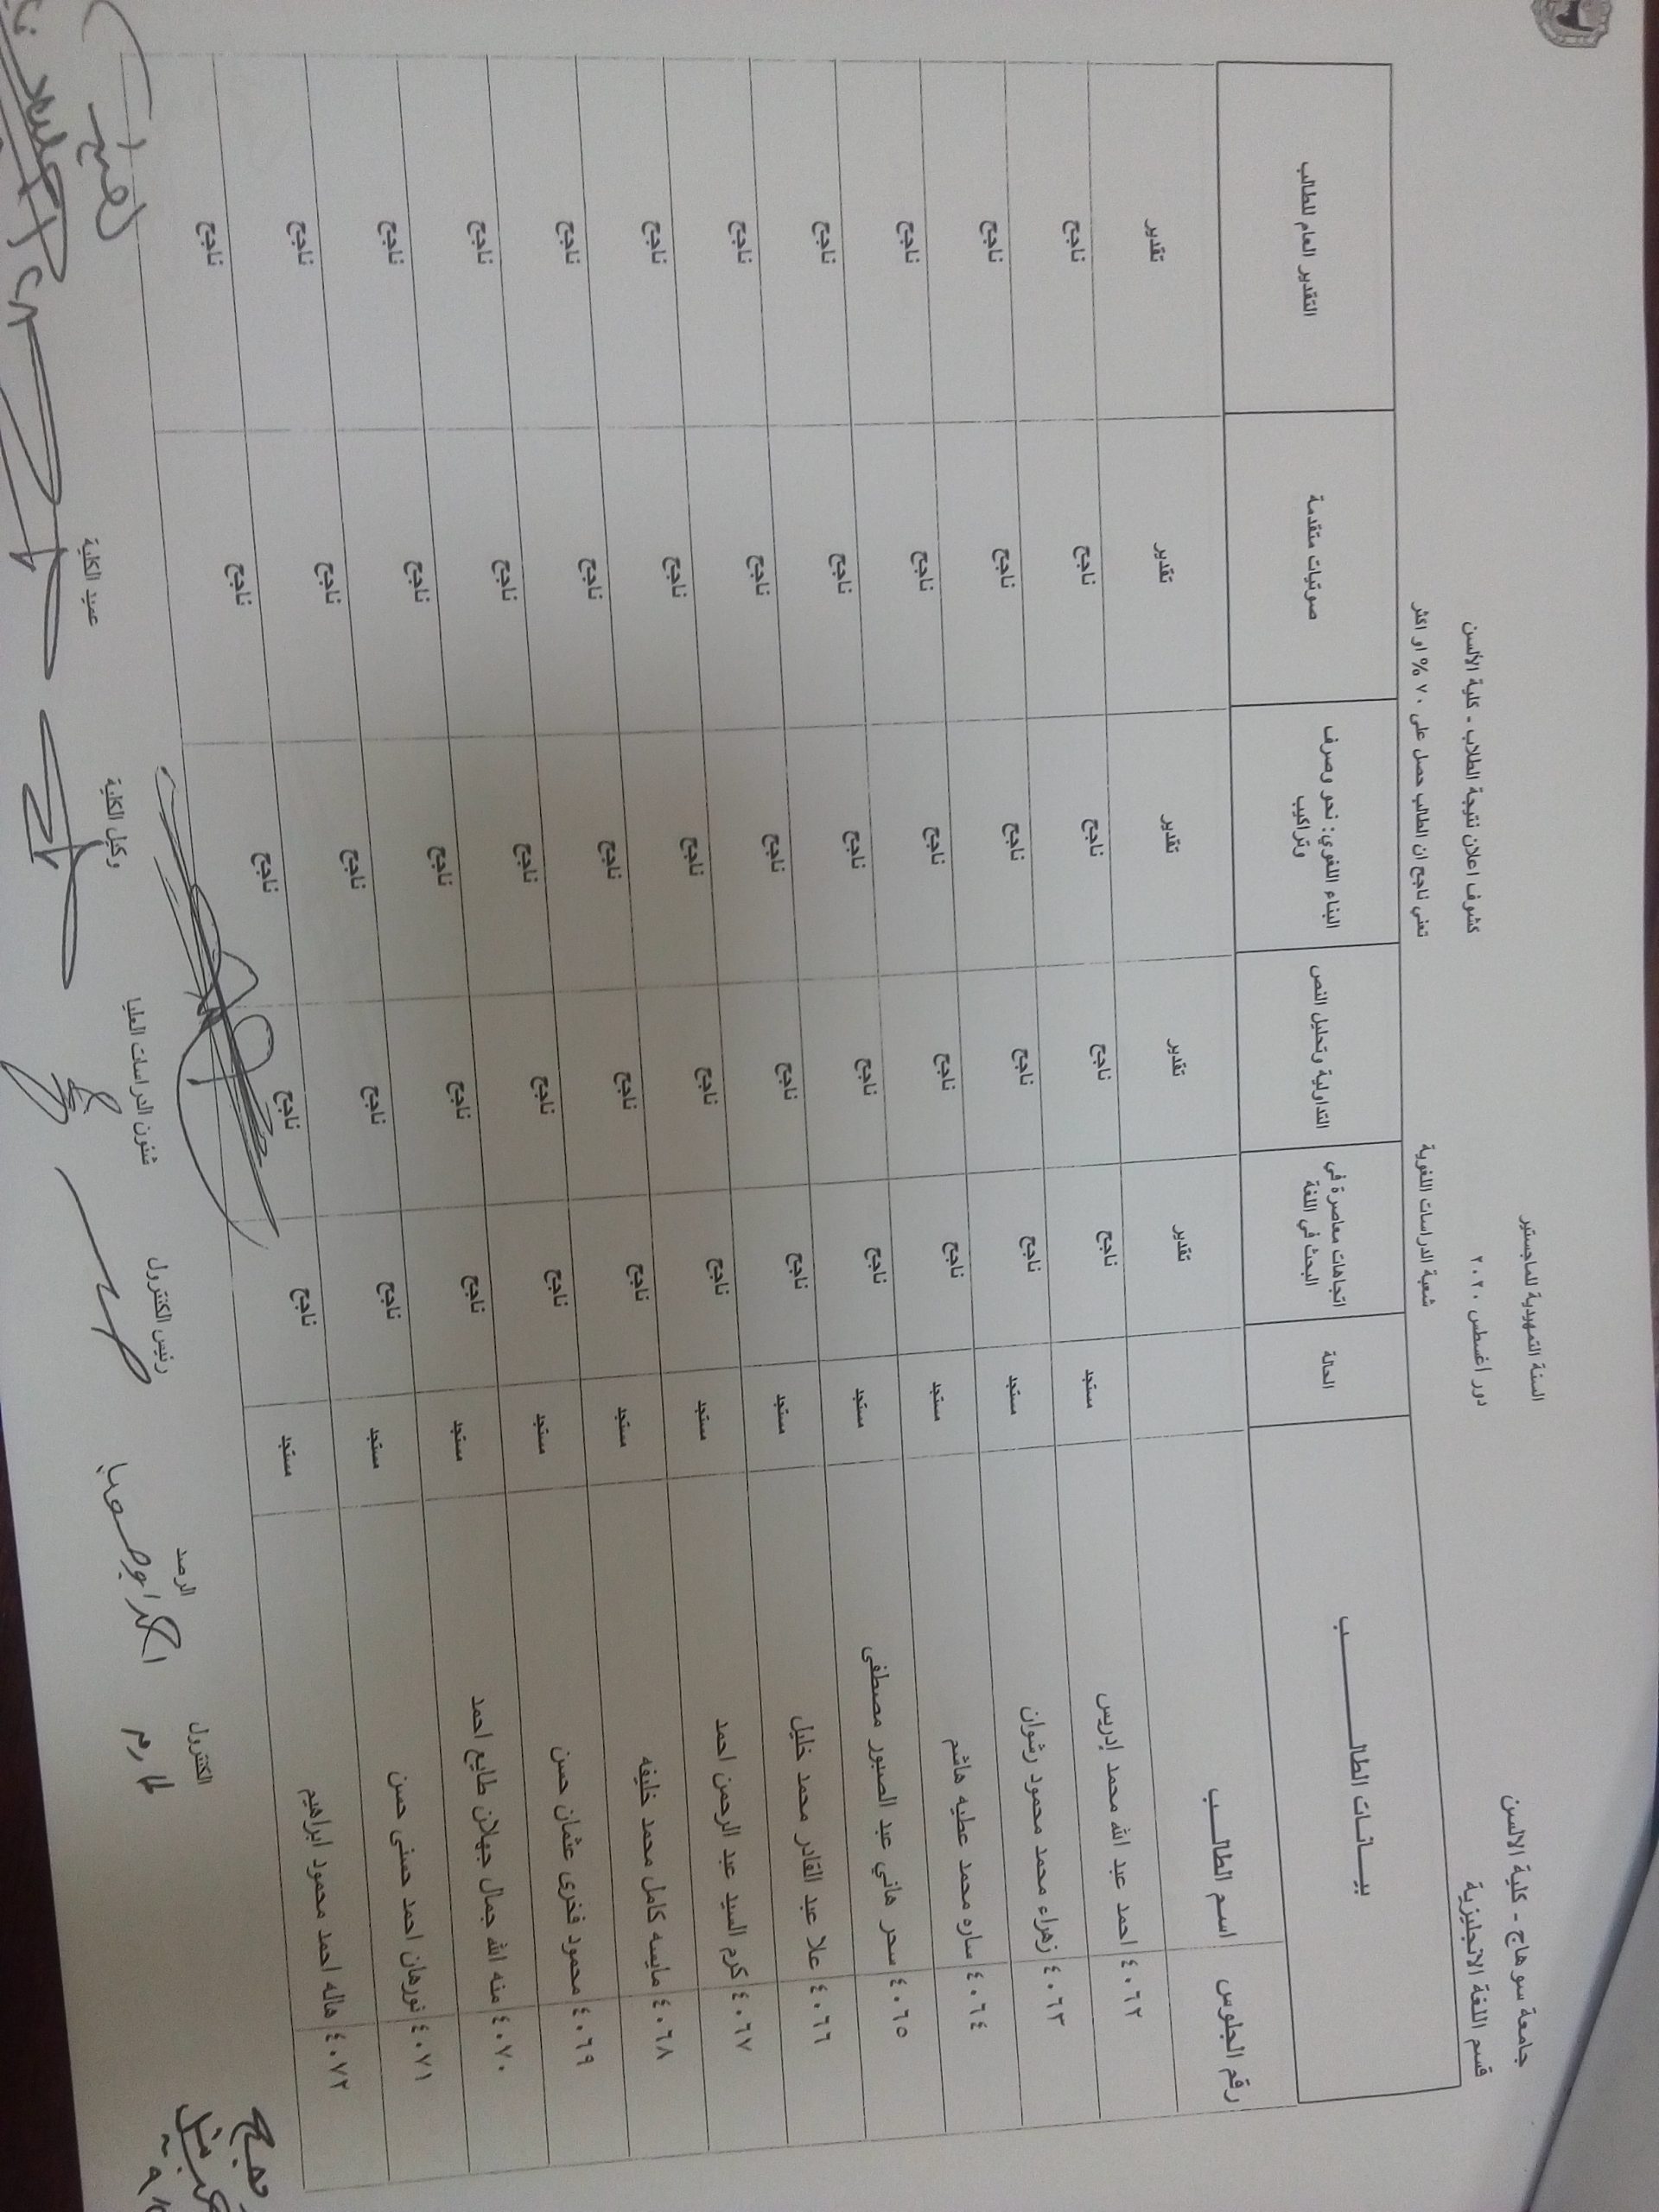 جامعة سوهاج - كلية الالسن
قسم اللغة الانجليزية
السنة التمهيدية للماجستير
دور أغسطس ٢٠٢٠
شعبة الدراسات اللغوية
كشوف اعلان نتيجة الطلاب - كلية الألسن
تعني ناجح ان الطالب حصل على ٧٠ % او اكثر
بيـــانـات الطالــــــــــــب الحالة اتجاهات معاصرة في البحث في اللغة التداولية وتحليل النص البناء اللغوي: نحو وصرف وتراكيب صوتيات متقدمة التقدير العام للطالب
رقم الجلوس اسـم الطالــــب تقدير تقدير تقدير تقدير تقدير
٤٠٦٢ احمد عبد الله محمد إدريس مستجد ناجح ناجح ناجح ناجح ناجح
٤٠٦٣ زهراء محمد محمود رشوان مستجد ناجح ناجح ناجح ناجح ناجح
٤٠٦٤ ساره محمد عطيه هاشم مستجد ناجح ناجح ناجح ناجح ناجح
٤٠٦٥ سحر هاني عبد الصبور مصطفى مستجد ناجح ناجح ناجح ناجح ناجح
٤٠٦٦ علا عبد القادر محمد خليل مستجد ناجح ناجح ناجح ناجح ناجح
٤٠٦٧ كرم السيد عبد الرحمن احمد مستجد ناجح ناجح ناجح ناجح ناجح
٤٠٦٨ مايسه كامل محمد خليفه مستجد ناجح ناجح ناجح ناجح ناجح
٤٠٦٩ محمود فخرى عثمان حسن مستجد ناجح ناجح ناجح ناجح ناجح
٤٠٧٠ منه الله جمال جهلان طايع احمد مستجد ناجح ناجح ناجح ناجح ناجح
٤٠٧١ نورهان احمد حسنى حسن مستجد ناجح ناجح ناجح ناجح ناجح
٤٠٧٢ هاله احمد محمود ابراهيم مستجد ناجح ناجح ناجح ناجح ناجح
الكنترول الرصد رئيس الكنترول شئون الدراسات العليا وكيل الكلية عميد الكلية